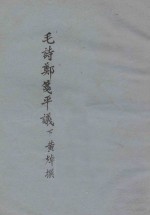 毛詩鄭箋平議下 黄焯撰